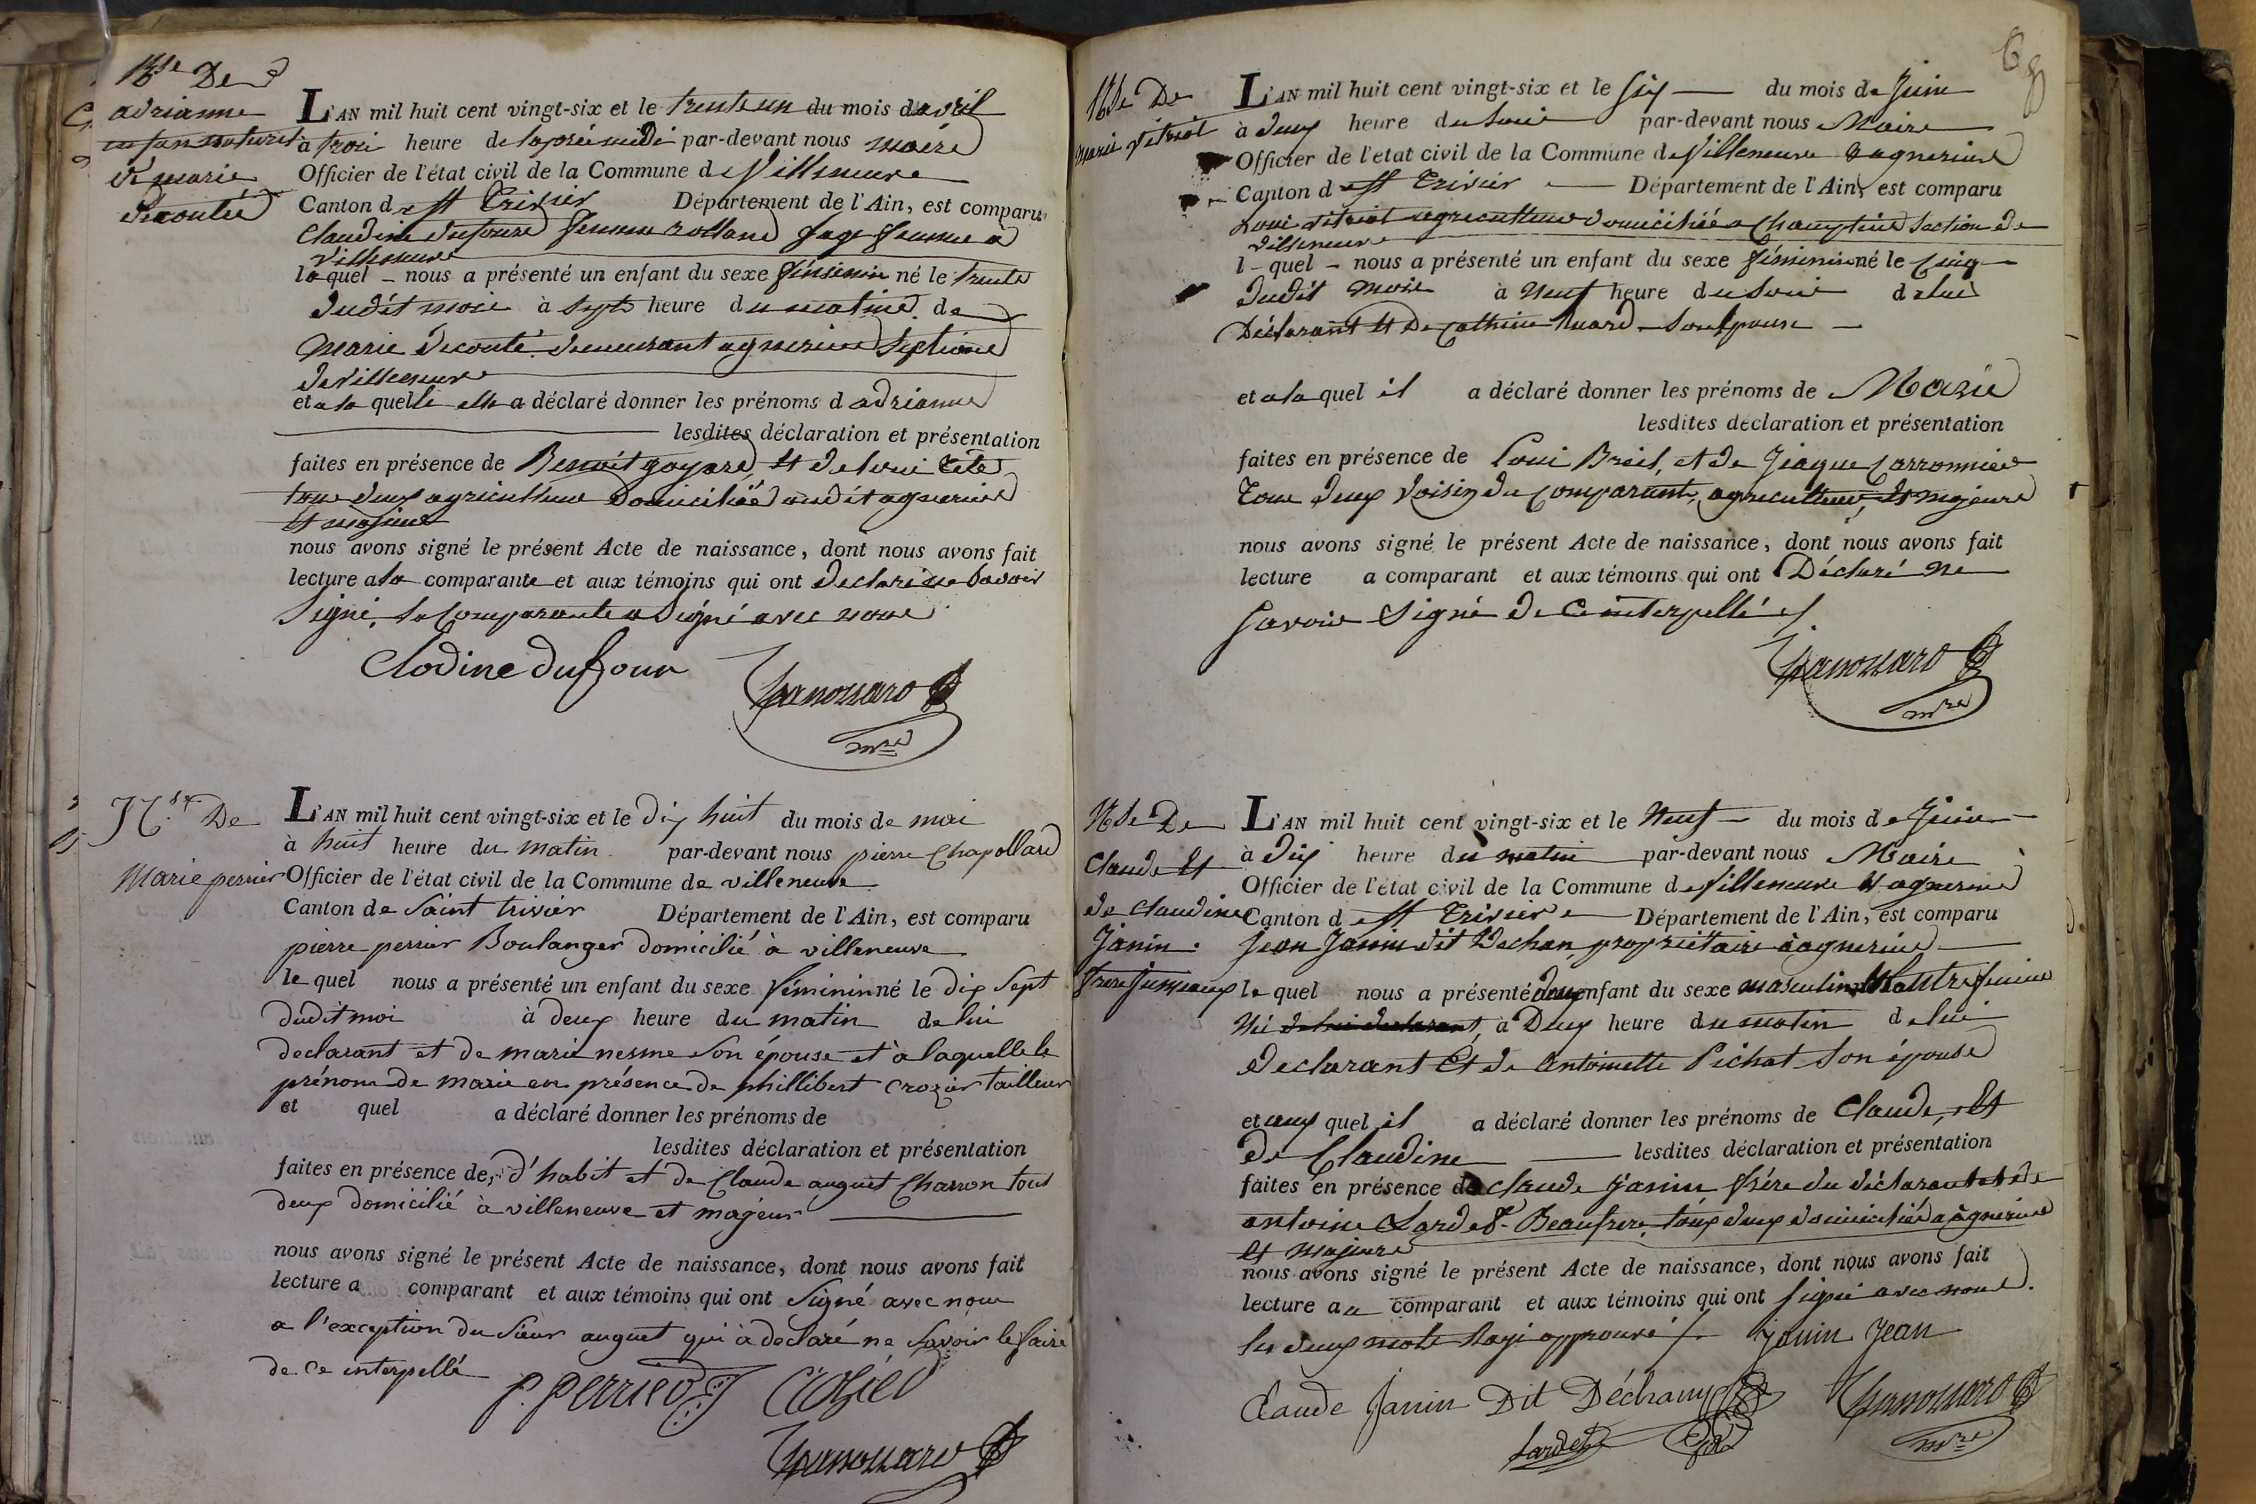 Nse De
adrianne
enfan naturel
de marie
decoutée
L'AN mil huit cent vingt-six et le trente un du mois d avril
à troi heure de laprée midi par-devant nous maire
Officier de l'état civil de la Commune de Villeneuve
Canton de st Trivier Département de l'Ain, est comparu
Claudine dufoure femme rolland sage femme a
Villeneuve
la quel nous a présenté un enfant du sexe féminin né le trente
dudit moi à sept heure du matin de
Marie decouté demeurant agnerine Sextione
de Villeneuve
et a la quelle elle a déclaré donner les prénoms d adrianne
lesdites déclaration et présentation
faites en présence de Benoit goyard et de loui tete
tous deux agriculteur domicilié audit agnerine
et majeur
nous avons signé le présent Acte de naissance, dont nous avons fait
lecture a la comparante et aux témoins qui ont declaré ne Savoir
signé, la Comparante a Signé avec nous
Clodine dufour
mre
Nse De
Marie perrier
L'AN mil huit cent vingt-six et le dix huit du mois de mai
à huit heure du matin par-devant nous pierre Chapollard
Officier de l'état civil de la Commune de villeneuve
Canton de Saint trivier Département de l'Ain, est comparu
pierre perrier Boulanger domicilié à villeneuve
le quel nous a présenté un enfant du sexe féminin né le dix Sept
dudit moi à deux heure du matin de lui
declarant et de marie nesme Son épouse et à laquelle le
prénom de marie en présence de phillibert Crozier tailleur
et quel a déclaré donner les prénoms de
lesdites déclaration et présentation
faites en présence de, d'habit et de Claude auguet Charron tous
deux domicilié à villeneuve et majeur
nous avons signé le présent Acte de naissance, dont nous avons fait
lecture a comparant et aux témoins qui ont Signé avec nous
a l'exception du Sieur auguet qui à declaré ne Savoir le faire
de ce interpellé
P. perrier
68
Nse De
marie vitriot
L'AN mil huit cent vingt-six et le six du mois de Juin
à deux heure du Soir par-devant nous Maire
Officier de l'état civil de la Commune de Villeneuve agnerine
Canton de st Trivier Département de l'Ain, est comparu
Loui vitriot agriculteur domicilié a Champtein Section de
Villeneuve
l quel nous a présenté un enfant du sexe féminin né le cinq
dudit mois à Neuf heure du Soir de lui
Déclarant Et De Cathrine Son Epouse
et a la quel il a déclaré donner les prénoms de Marie
lesdites déclaration et présentation
faites en présence de Loui et de Jaque Carronnier
Tous deux voisin du Comparant, agriculteur, et majeure
nous avons signé le présent Acte de naissance, dont nous avons fait
lecture a comparant et aux témoins qui ont Déclaré Ne
Savoir Signé De Ce interpellé
mre
Nse De
Claude Et
de Claudine
Janin
frere Jumeaux
L'AN mil huit cent vingt-six et le Neuf du mois de Juin
à Dix heure du matin par-devant nous Maire
Officier de l'état civil de la Commune de Villeneuve et agnerine
Canton de st Trivier Département de l'Ain, est comparu
Jean Janin dit Dechan, propriétaire à agnerine
le quel nous a présenté deux enfant du sexe masculin et l'autre féminin
Né de lui declarant, à Deux heure du matin de lui
Declarant Et de Antoinette Pichat Son épouse
et aux quel il a déclaré donner les prénoms de Claude, Et
de Claudine lesdites déclaration et présentation
faites en présence de claude Janin frère du déclarant et de
antoine Lardet Beaufrere, tous deux domicilié a agnerine
et Majeure
nous avons signé le présent Acte de naissance, dont nous avons fait
lecture au comparant et aux témoins qui ont signé avec nous.
les deux mots Rayé approuvé Janin Jean
Claude Janin Dit Déchan
Lardet
mre